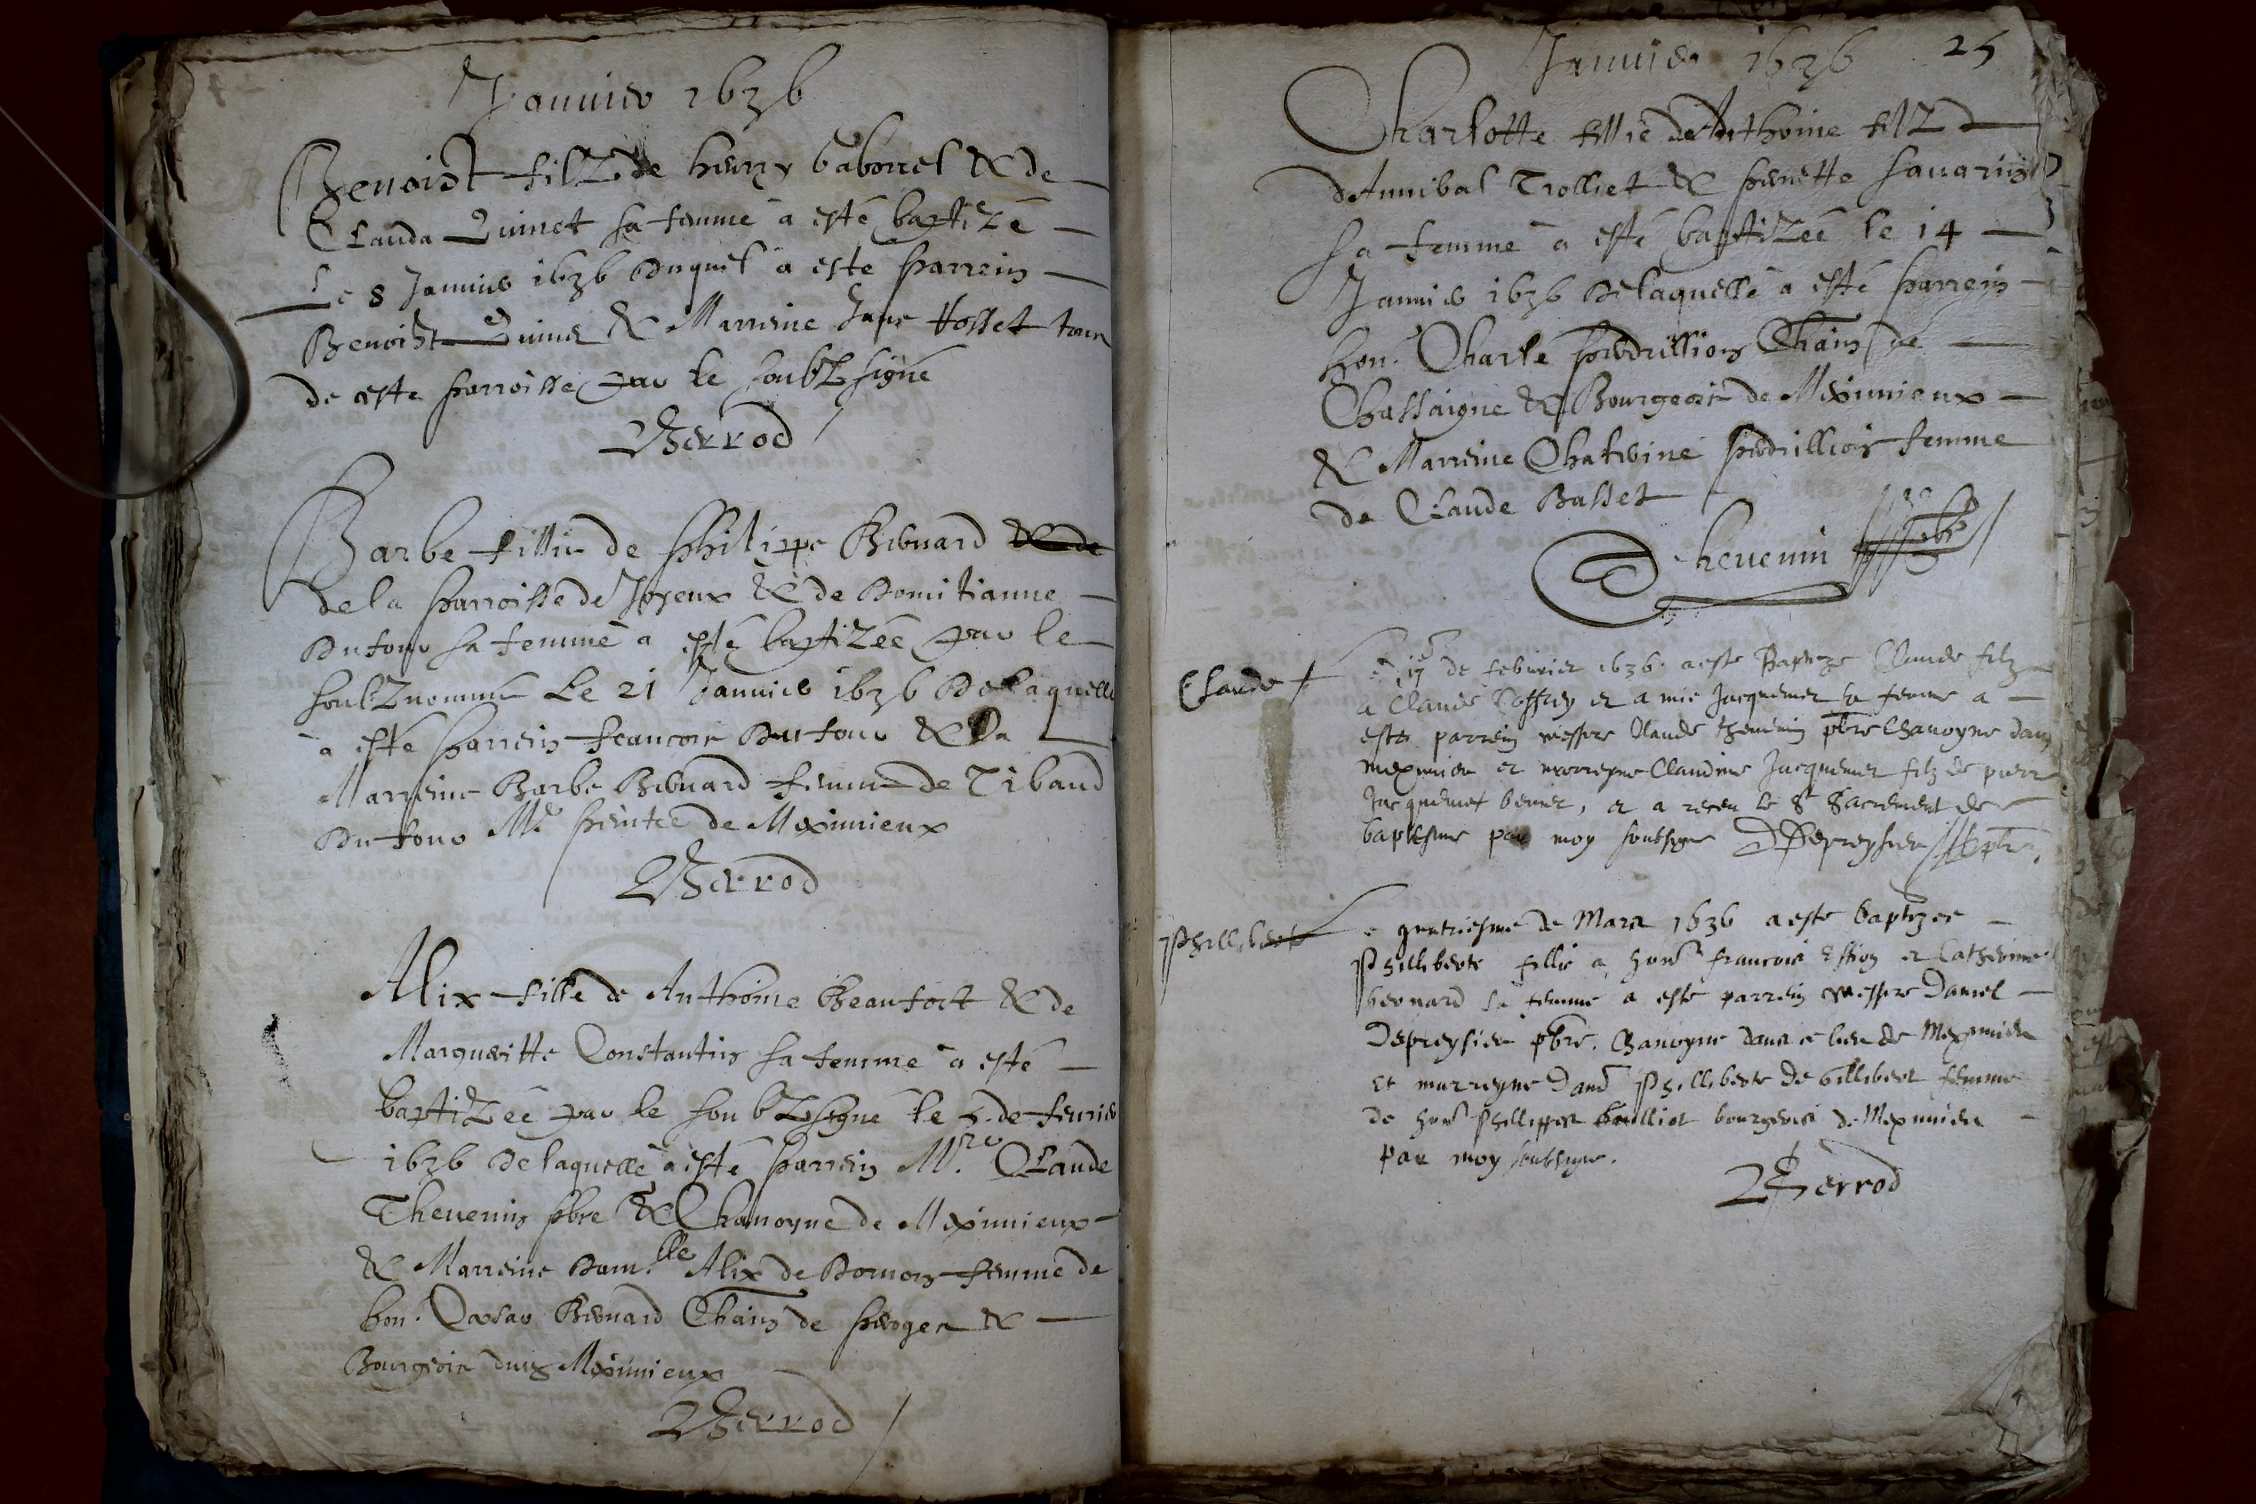 Januier 1636
Benoist filz de henry Gabonel & de
Clauda Quinet sa femme a esté baptizé
Le 8 Januier 1636 duquel a este parrein
Benoist Quinet & Marreine Jane Hosset tous
de ceste parroisse par le soubzsigné
Verrod
Barbe fillie de philippe Bernard
de la parroisse de Joyeux & de Domitianne
Dufour sa femme a esté baptizée par le
soubznommé Le 21 Januier 1636 De laquelle
a esté parrein francois Dufour & la
Marreine Barbe Bernard femme de Tibaud
Dufour Me peintre de Meximieux
Verrod
Alix fille de Anthoine Beaufort & de
Margueritte Constantin sa femme a esté
baptizée par le soubzsigné le 5 de feurier
1636 de laquelle a esté parrein Mre Claude
Theuenin pbre & Chanoyne de Meximieux
& Marreine Dam.lle Alix de femme de
hon. Cæsar Bernard Chain de peroges &
Bourgeois dung Meximieux
Verrod
Januier 1636 25
Charlotte fillie de Anthoine filz
de Annibal Trolliet & pernette sauarin
sa femme a esté baptizée le 14
Januier 1636 de laquelle a esté parrein
hon. Charle perdrillion Chain de
Chassaigne & Bourgeois de Meximieux
& Marreine Chaterine perdrillion femme
de Claude Basset
Theuenin pbre
Claude
Le 17 de feburier 1636. a este Baptize Claude filz
a Claude Joffrey et a mie Jacquemet sa femme a
este parrein messre Claude theuenin pbre Chanoyne dans
meximieu et marreyne Claudine Jacquemet filz de pierre
Jacquemet , et a receu le St Sacrement de
baptesme par moy soubsigne DDepreysieu pbre
Philliberte
Le quatriesme de Mars 1636 a este baptizee
Philliberte fillie a honr francois et Catherine
bernard sa femme a esté parrein messre Daniel
Depreysieu pbre. Chanoyne dans ce lieu de Meximieu
et marreyne Damlle Philliberte de Gillibert femme
de honr Phillippes bourgeois de Meximieu
par moy soubsigne.
Verrod